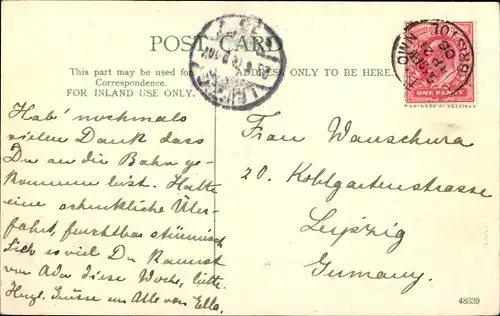 POST CARD
This part may be used for
Correspondence.
FOR INLAND USE ONLY.
ADDRESS ONLY TO BE HERE.
ONE PENNY
BRISTOL
Hab' nochmals
vielen Dank dass
Du an die Bahn ge-
kommen bist. Hatte
eine schreckliche Über-
fahrt, furchtbar stürmisch
so viel Du kannst
von Ada diese Woche, bitte.
Herzl. Grüsse an Alle von Ella.
Frau Wanschura
20. Kohlgartenstrasse
Leipzig
Germany.
48339